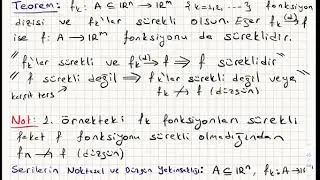 Teorem: f_k: A ⊆ ℝⁿ → ℝᵐ {k=1,2,...} fonksiyon
dizisi ve f_k'lar sürekli olsun. Eğer f_k →(d) f
ise f: A → ℝᵐ fonksiyonu da süreklidir.
f_k'lar sürekli ve f_k →(d) f ⟹ f süreklidir
f sürekli değil ⟹ f_k'lar sürekli değil veya
karşıt ters f_k ↛ f (düzgün)
Not: 1. örnekteki f_k fonksiyonları sürekli
fakat f fonksiyonu sürekli olmadığından
f_n ↛ f (düzgün)
Serilerin Noktasal ve Düzgün Yakınsaklığı: A ⊆ ℝⁿ, f_k: A → ℝ